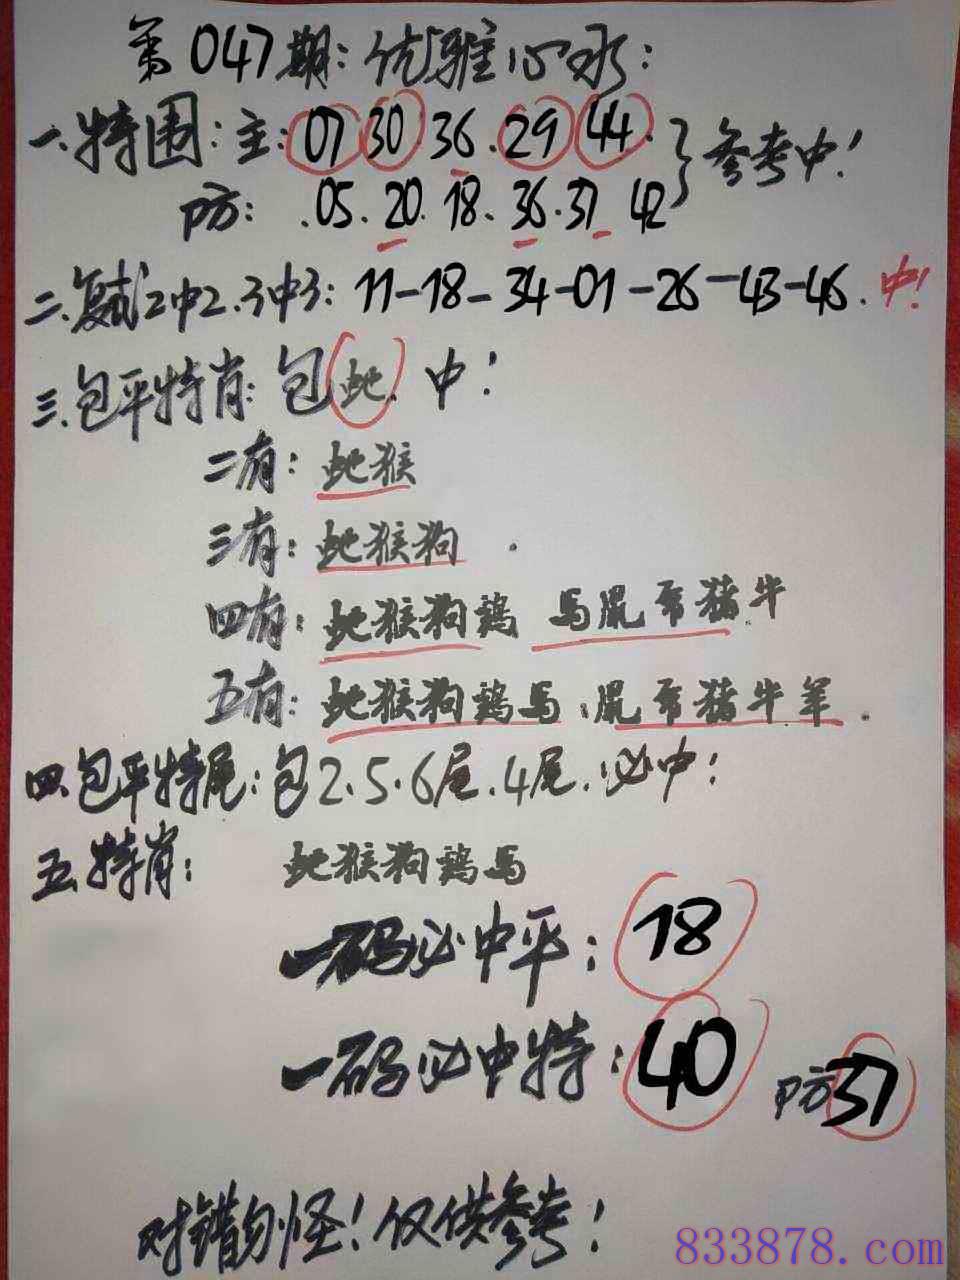 第047期:优雅心水:
一.特围:主:07 30.36.29 44.
防:.05.20.18.36.37 42 } 参考中!
二.复试2中2.3中3:11-18-34-01-26-43-46.中!
三.包平特肖:包蛇.中!
二有:蛇猴
三有:蛇猴狗.
四有:蛇猴狗鸡 马鼠 猪牛
五有:蛇猴狗鸡马.鼠 猪牛羊.
四.包平特尾:包2.5.6尾.4尾.必中!
五.特肖: 蛇猴狗鸡马
一码必中平:18
一码必中特:40 防37
对错勿怪!仅供参考!
833878.com